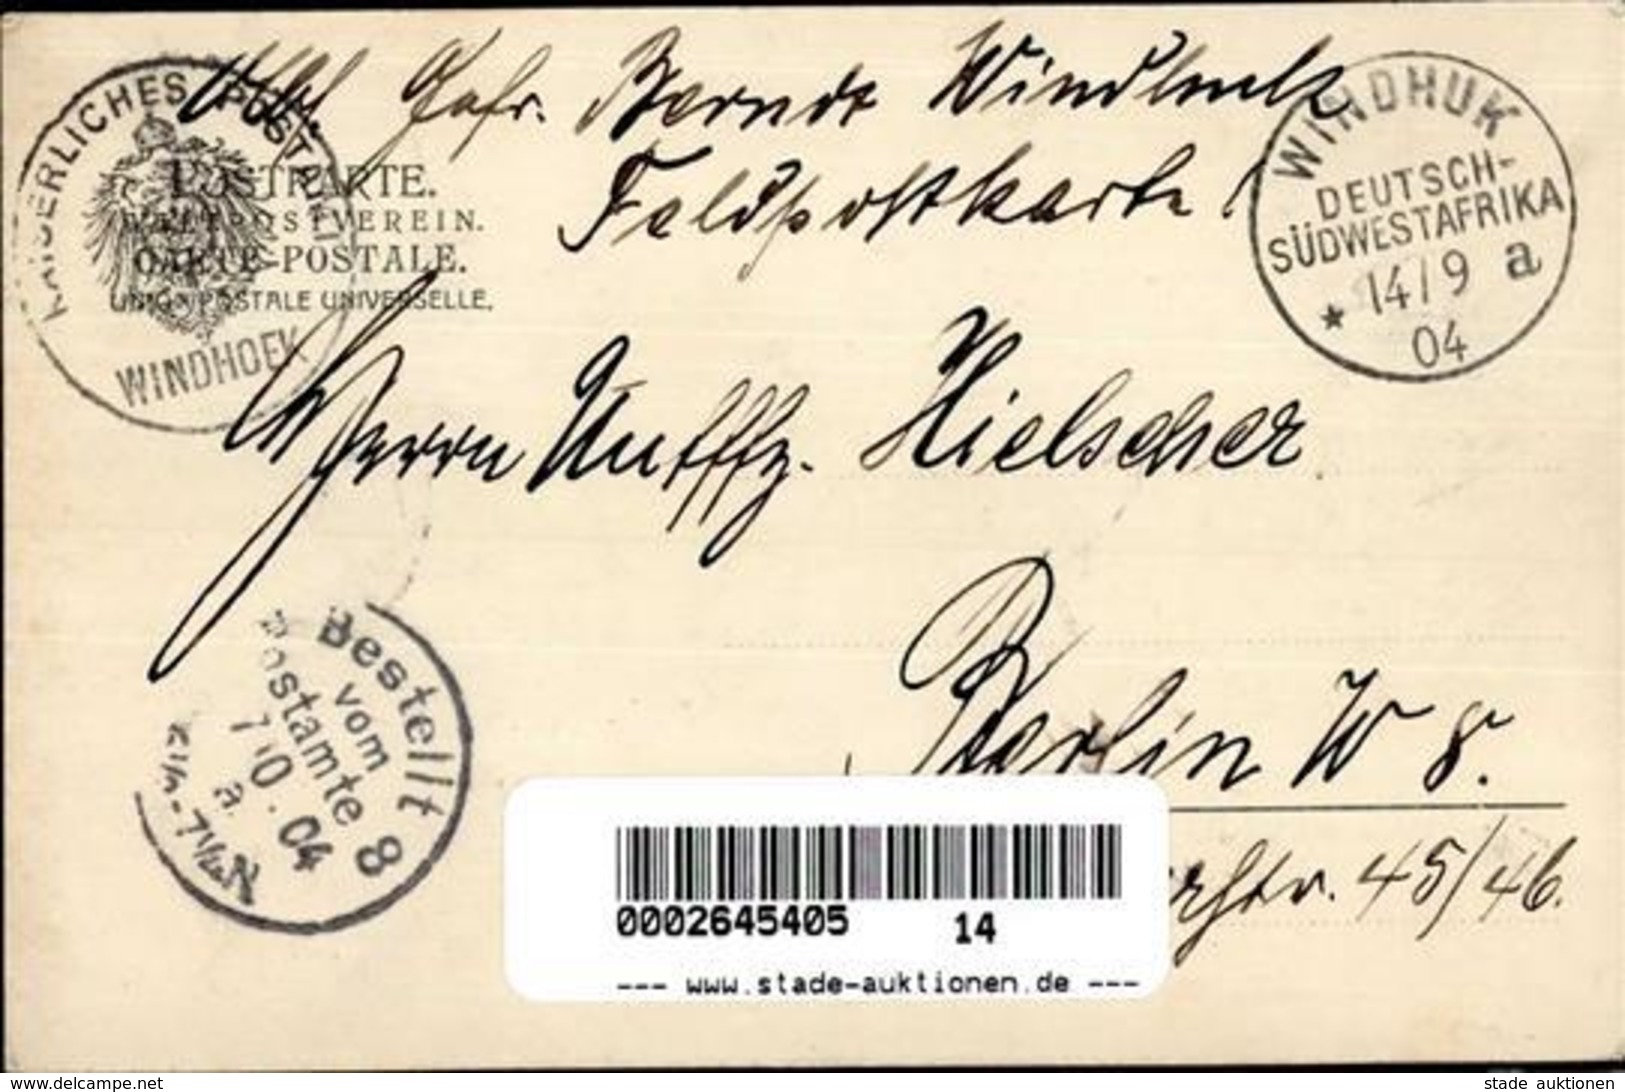 Gefr. Berndt Windhuk
Feldpostkarte!
KAISERLICHES POSTAMT
WINDHOEK
POSTKARTE.
WELTPOSTVEREIN.
CARTE-POSTALE.
UNION POSTALE UNIVERSELLE.
WINDHUK
DEUTSCH-
SÜDWESTAFRIKA
* 14/9 a
04
Herrn Hielscher
Berlin W 8.
str. 45/46.
Bestellt
vom
Postamte 8
10.04
0002645405 14
--- www.stade-auktionen.de ---
www.delcampe.net
stade_auktionen